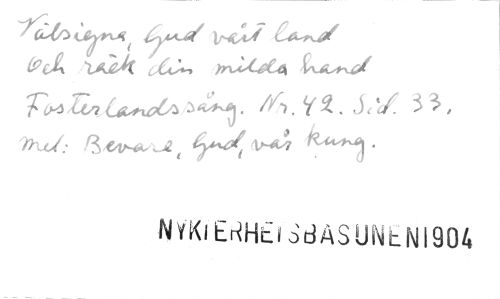 Välsigna, Gud vårt land
Och räck din milda hand
Fosterlandssång. Nr. 42. Sid. 33.
mel: Bevare, Gud, vår kung.
NYKTERHETSBASUNEN 1904